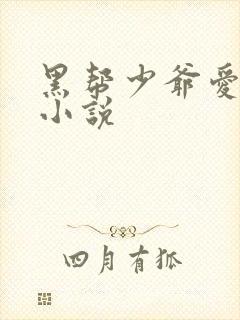 黑帮少爷爱
小説
四月有狐